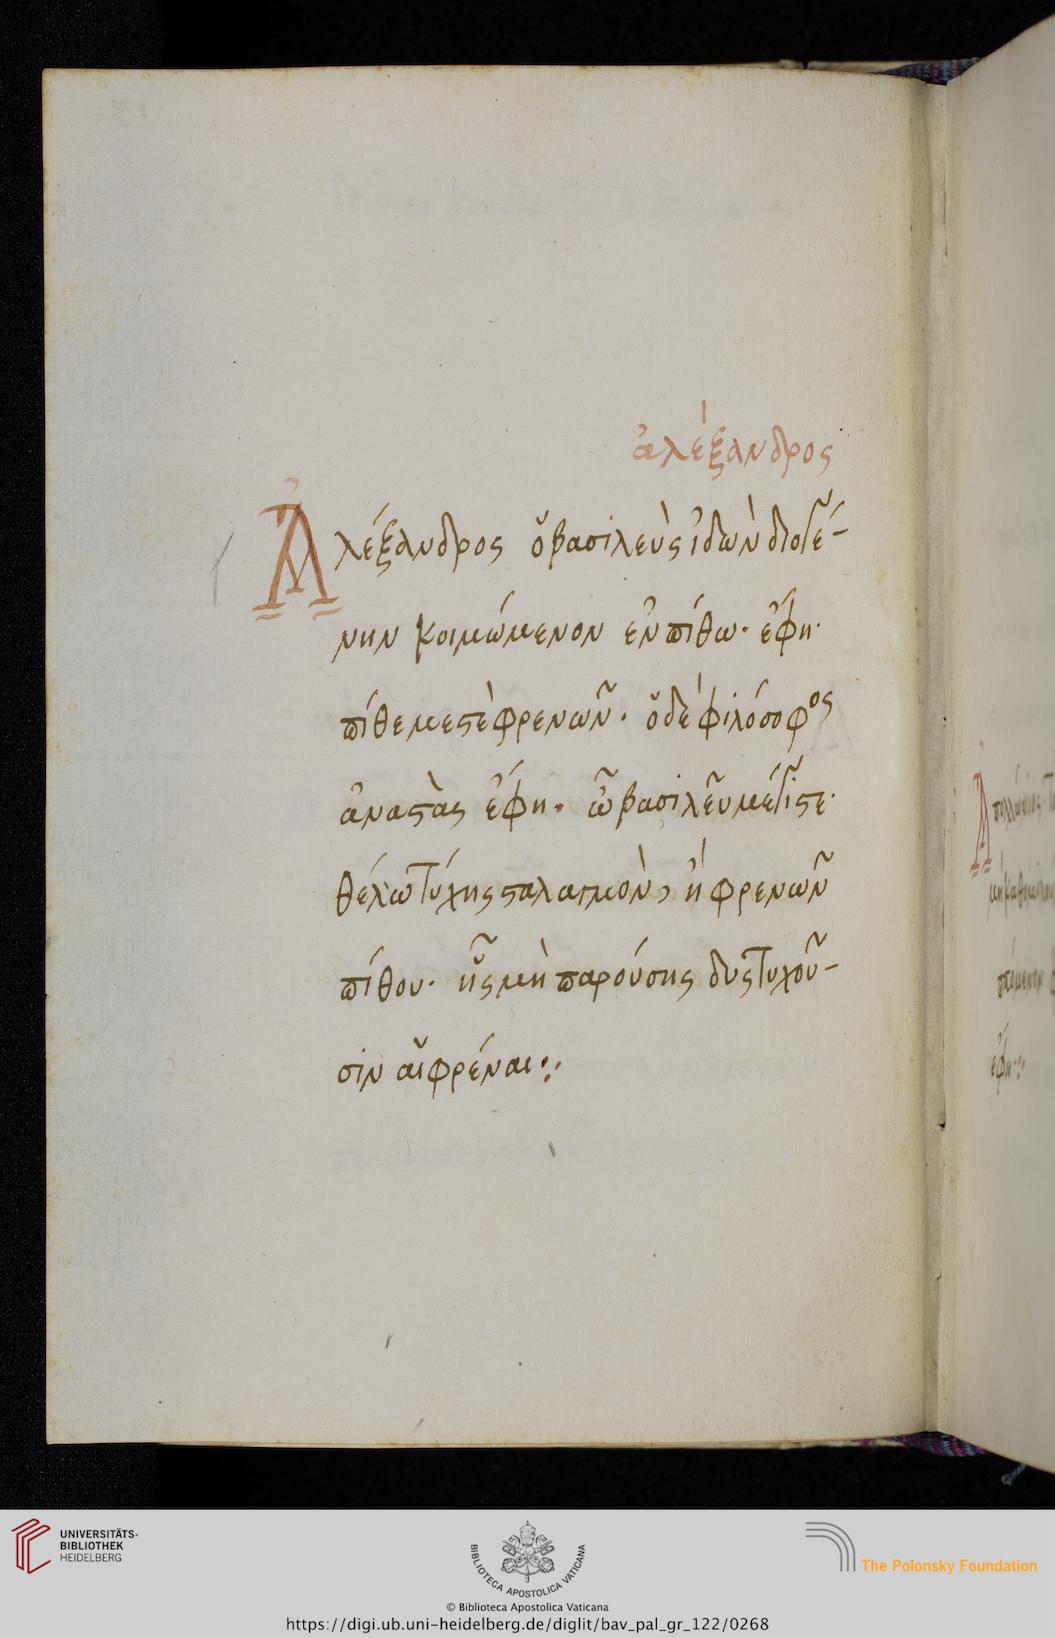 ἀλέξανδρος
Ἀλέξανδρος ὁ βασιλεὺς ἰδὼν διογέ-
νην κοιμώμενον ἐν πίθω· ἔφη·
πίθε μεστὲ φρενῶν· ὁ δὲ φιλόσοφος
ἀναστὰς ἔφη· ὦ βασιλεῦ μέγιστε·
θέλω τύχης σταλαγμὸν, ἢ φρενῶν
πίθον· ἧς μὴ παρούσης δυστυχοῦ-
σιν αἱ φρέναι
UNIVERSITÄTS-
BIBLIOTHEK
HEIDELBERG
BIBLIOTECA APOSTOLICA VATICANA
The Polonsky Foundation
© Biblioteca Apostolica Vaticana
https://digi.ub.uni-heidelberg.de/diglit/bav_pal_gr_122/0268